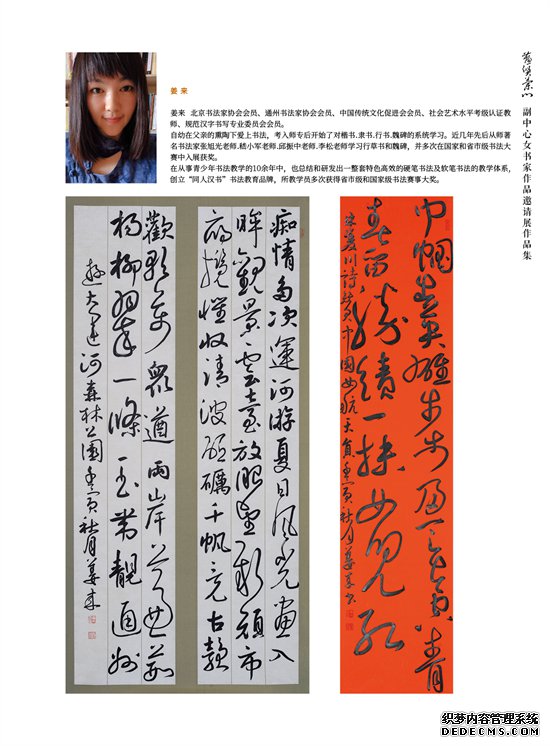 姜 来
姜来 北京书法家协会会员、通州书法家协会会员、中国传统文化促进会会员、社会艺术水平考级认证教
师、规范汉字书写专业委员会会员。
自幼在父亲的熏陶下爱上书法，考入师专后开始了对楷书.隶书.行书.魏碑的系统学习。近几年先后从师著
名书法家张旭光老师.嵇小军老师.邱振中老师.李松老师学习行草书和魏碑，并多次在国家和省市级书法大
赛中入展获奖。
在从事青少年书法教学的10余年中，也总结和研发出一整套特色高效的硬笔书法及软笔书法的教学体系，
创立“同人汉书”书法教育品牌，所教学员多次获得省市级和国家级书法赛事大奖。
副中心女书家作品邀请展作品集
痴情多次運河游夏日風光画入
眸觀景雲台放眼望彩頑市
清波砥礪千帆竞古韻
歡歌万眾遒兩岸
楊柳翠一條玉帶靚通州
遊大運河森林公園壬寅秋月姜来
巾幗英雄步步
春留績一抹女儿红
詩贊中國女航天員壬寅秋月姜来书
织梦内容管理系统
DEDECMS.COM